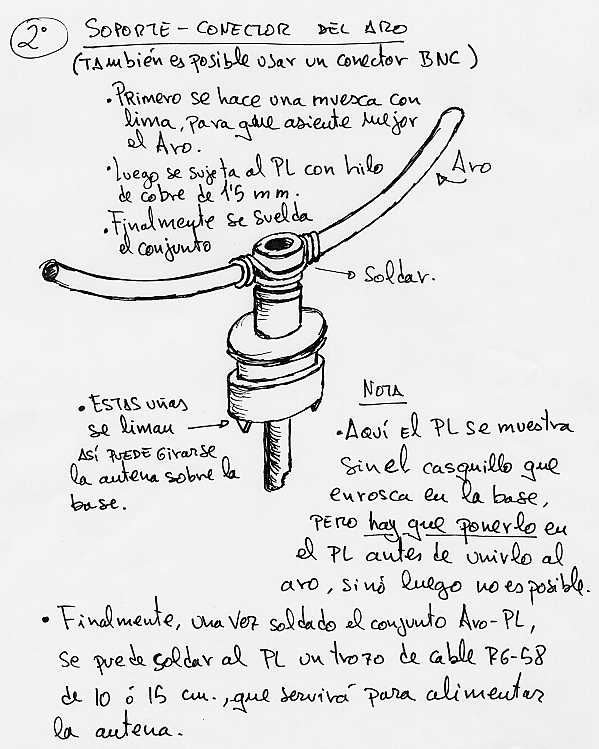 2º SOPORTE - CONECTOR DEL ARO
(TAMbién es posible usar un conector BNC)
• PRIMERO se hace una muesca con
lima, para que asiente mejor
el Aro.
• Luego se sujeta al PL con hilo
de cobre de 1'5 mm.
• Finalmente se suelda
el conjunto
Aro
Soldar.
• ESTAS uñas
se liman
ASÍ PUEDE GIRARSE
la antena sobre la
base.
NOTA
• AQUÍ EL PL se muestra
sin el casquillo que
enrosca en la base,
PERO hay que ponerlo en
el PL antes de unirlo al
aro, sinó luego no es posible.
• Finalmente, una vez soldado el conjunto Aro-PL,
se puede soldar al PL un trozo de cable RG-58
de 10 ó 15 cm., que servirá para alimentar
la antena.